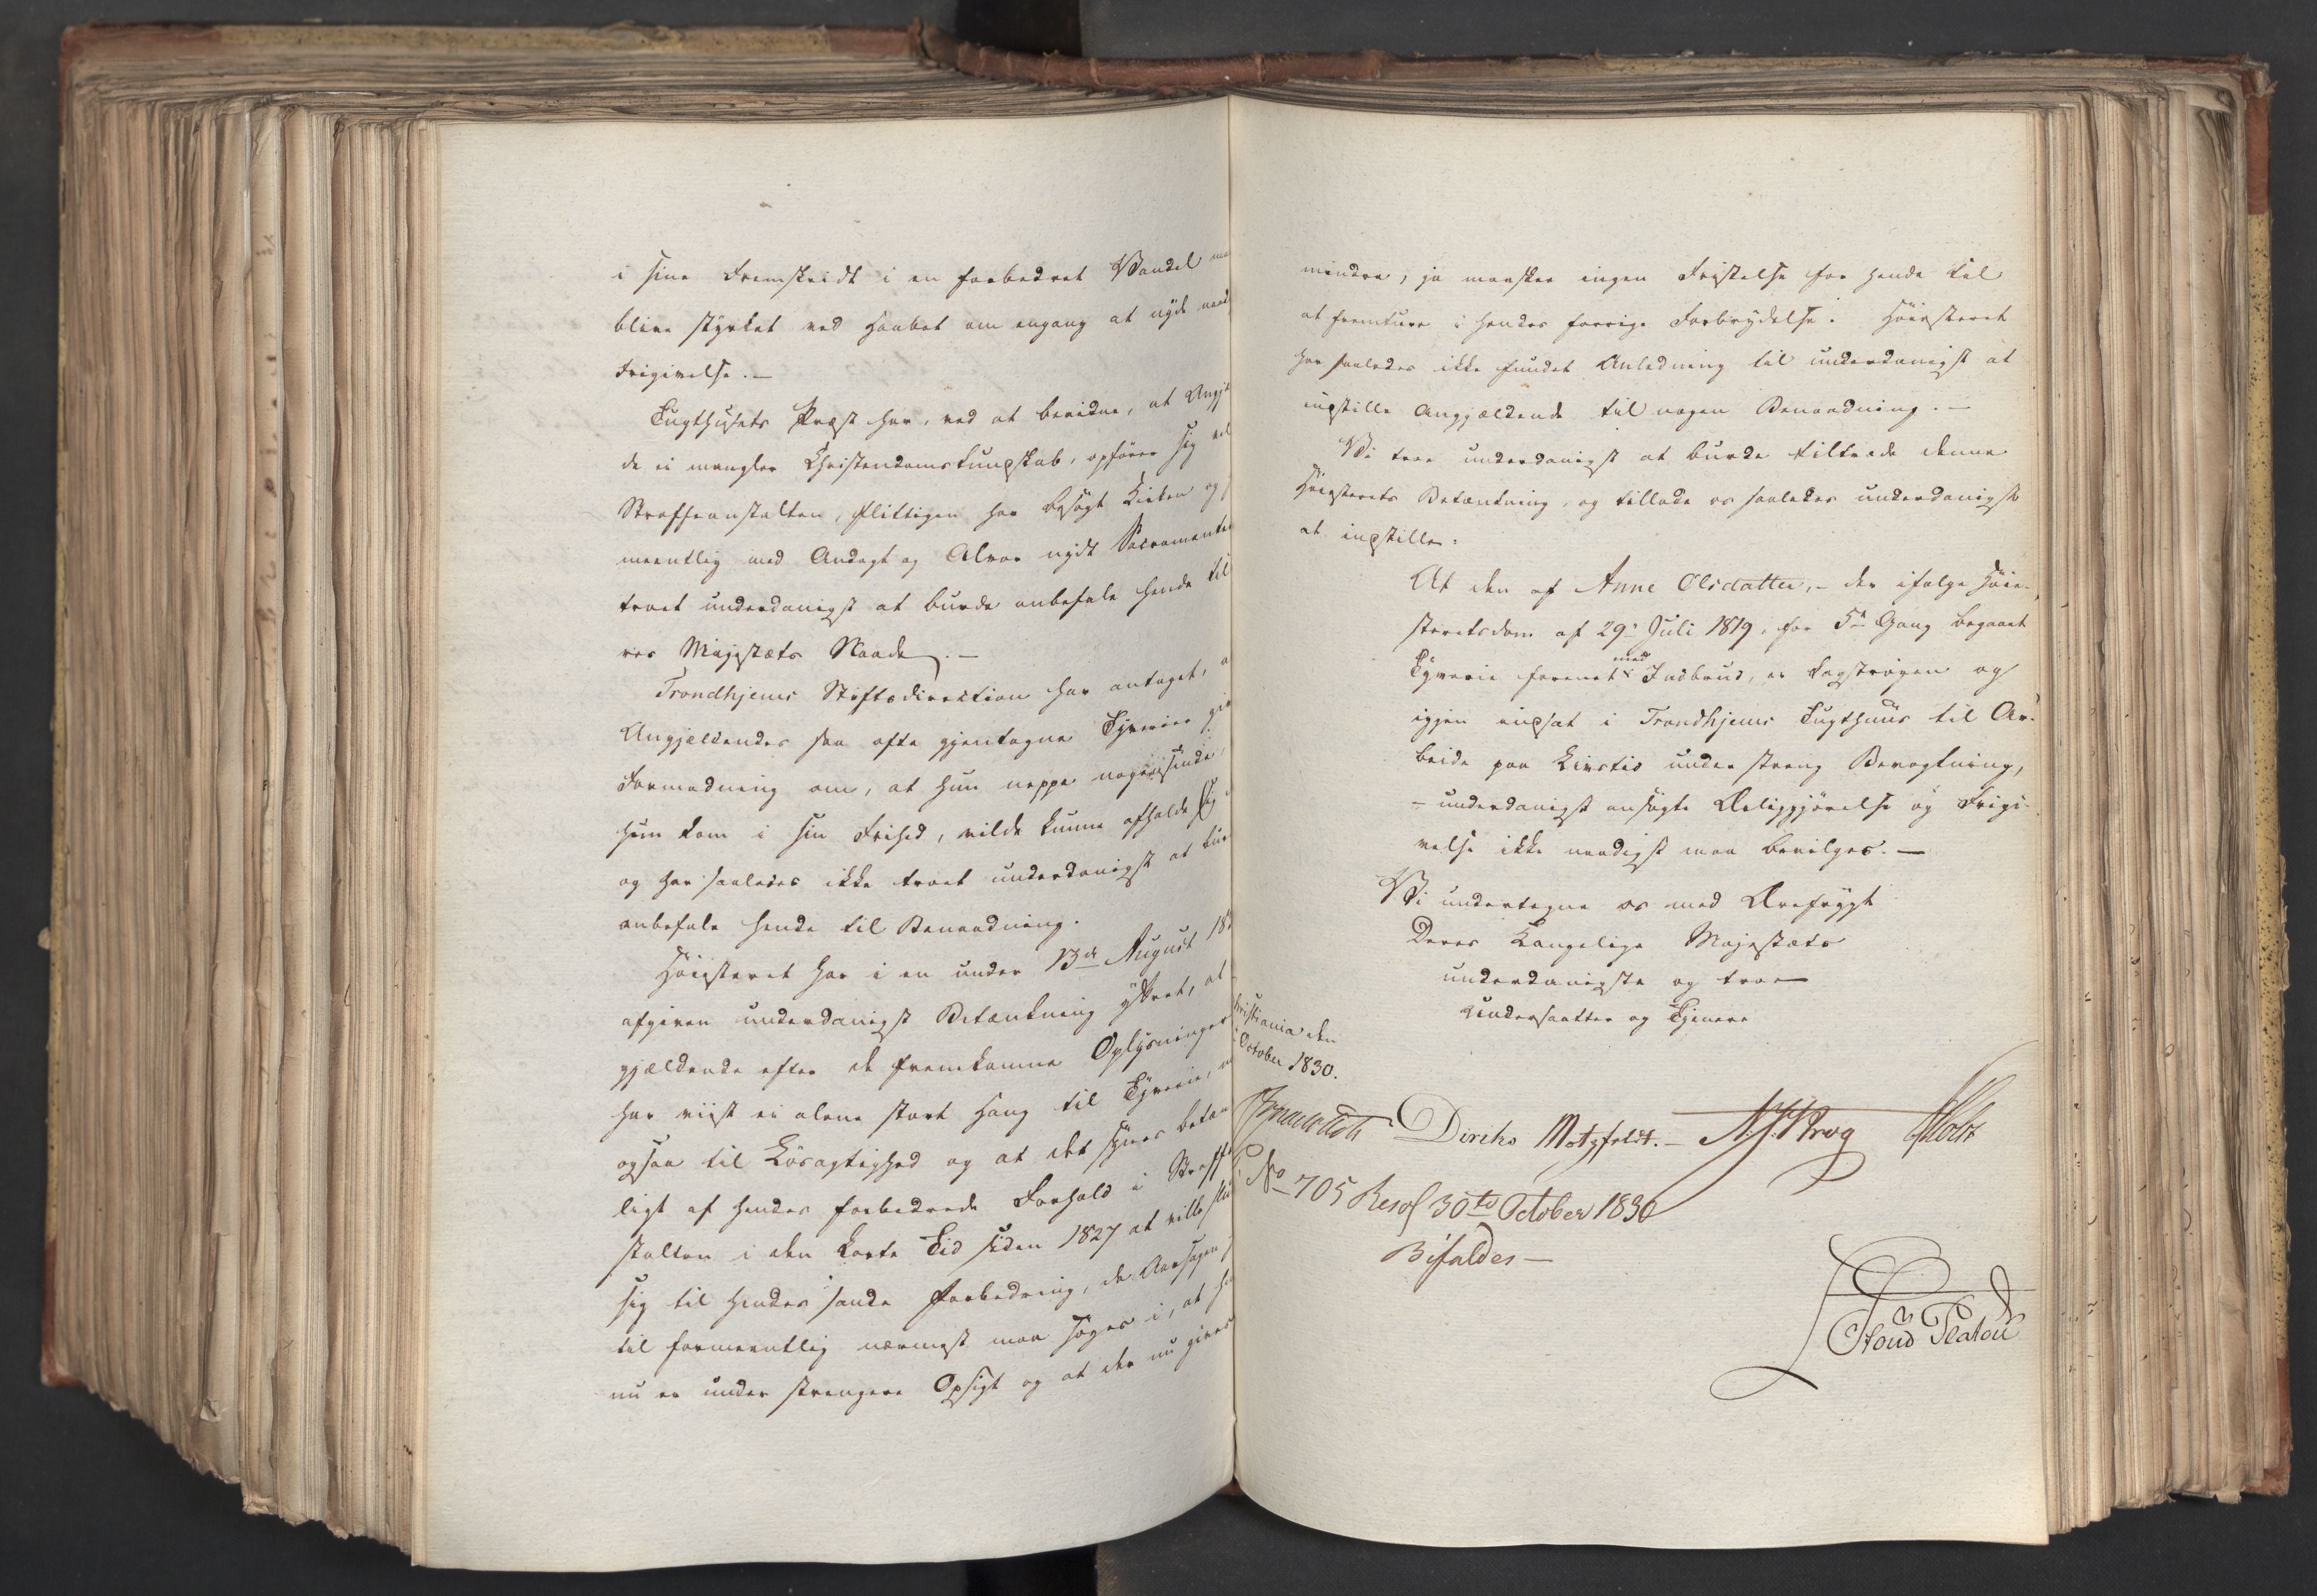 i sine Fremskridt i en forbedret Vandel
blive styrket ved Haabet om engang at nyde
Frigivelse. —
Tugthusets Præst har, ved at bevidne, at Angj
de ei mangler Christendomskundskab, opfører sig vel
Straffeanstalten, flittigen har besøgt Kirken og
meentlig med Andagt og Alvor nydt Sacramentet
troet underdanigst at burde anbefale hende til
res Majestæts Naade. —
Trondhjems Stiftsdirection har antaget, a
Angjældendes saa ofte gjentagne Tyverier giv
Formodning om, at hun neppe nogensinde,
hun kom i sin Frihed, vilde kunne afholde sig
og har saaledes ikke troet underdanigst at kun
anbefale hende til Benaadning.
Høiesteret har i en under 13de August 18
afgiven underdanigst Betænkning yttret, at
gjældende efter de fremkomne Oplysninger
har viist ei alene stort Hang til Tyverie,
ogsaa til Løsagtighed og at det synes betæn
ligt af hendes forbedrede Forhold i Straffe
stalten i den korte Tid siden 1827 at ville slu
sig til hendes sande Forbedring, da Aarsagen
til formeentlig nærmest maa søges i, at h
nu er under strengere Opsigt og at der nu gives
mindre, ja maaskee ingen Fristelse for hende til
at fremture i hendes forrige Forbrydelse. Høiesteret
har saaledes ikke fundet Anledning til underdanigst at
indstille Angjældende til nogen Benaadning. —
Vi troe underdanigst at burde tiltræde denne
Høiesterets Betænkning, og tillade os saaledes underdanigst
at indstille:
At den af Anne Olsdatter, – der ifølge Høie-
steretsdom af 29de Juli 1819, for 5te Gang begaaet
Tyverie forenet med Indbrud, er kagstrøgen og
igjen indsat i Trondhjems Tugthuus til Ar-
beide paa Livstid under streng Bevogtning,
– underdanigst ansøgte Æreligjørelse og Frigi-
velse ikke naadigst maa bevilges. —
Vi undertegne os med Ærefrygt
Deres Kongelige Majestæts
underdanigste og troe
Undersaatter og Tjenere
hristiania den
October 1830.
Diriks Motzfeldt. — Krog Holst
No 705 Resol 30te October 1830
Bifaldes —
Stoud Platou